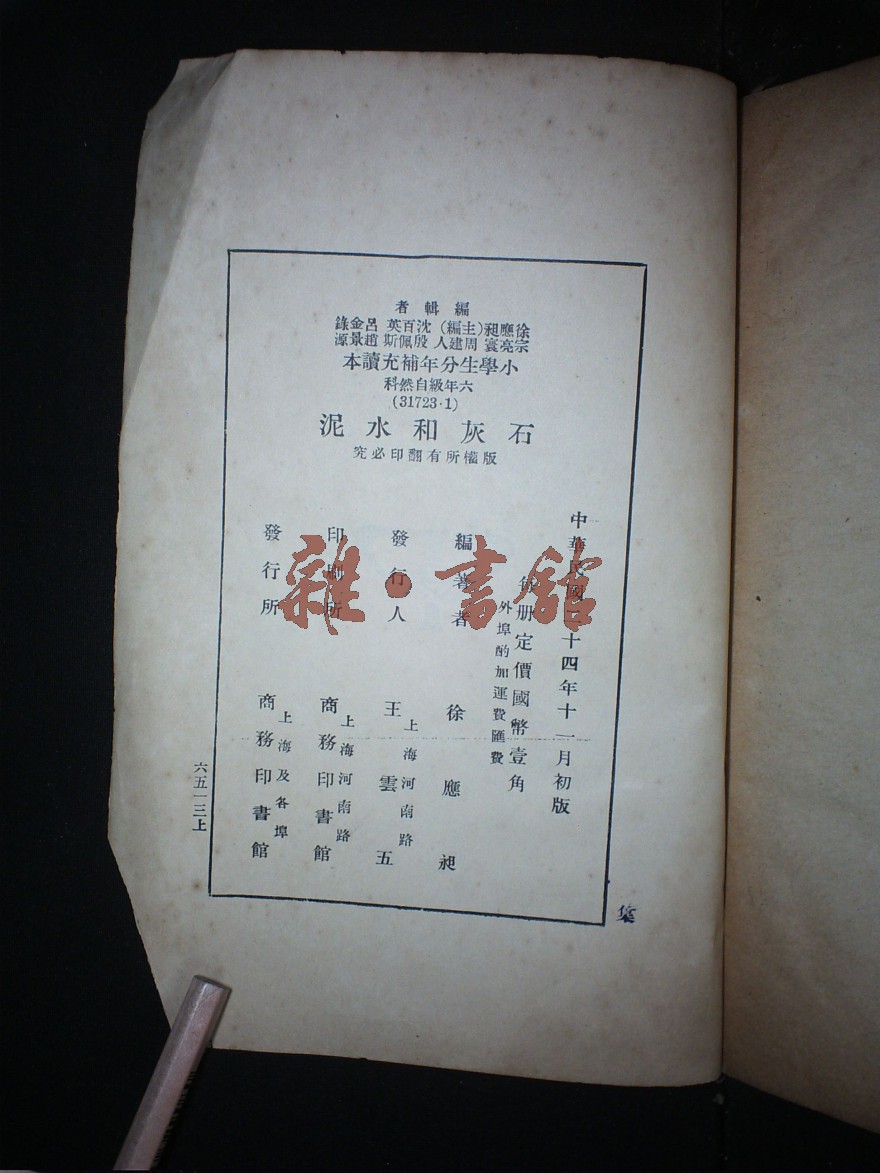 編輯者
徐應昶(主編) 沈百英 呂金錄
宗亮寰 周建人 殷佩斯 趙景源
小學生分年補充讀本
六年級自然科
(31723·1)
石灰和水泥
版權所有翻印必究
中華民國二十四年十一月初版
每册定價國幣壹角
外埠酌加運費匯費
編著者 徐應昶
發行人 王雲五
上海河南路
印刷所 商務印書館
上海河南路
發行所 商務印書館
上海及各埠
六五一三上
雜·書館